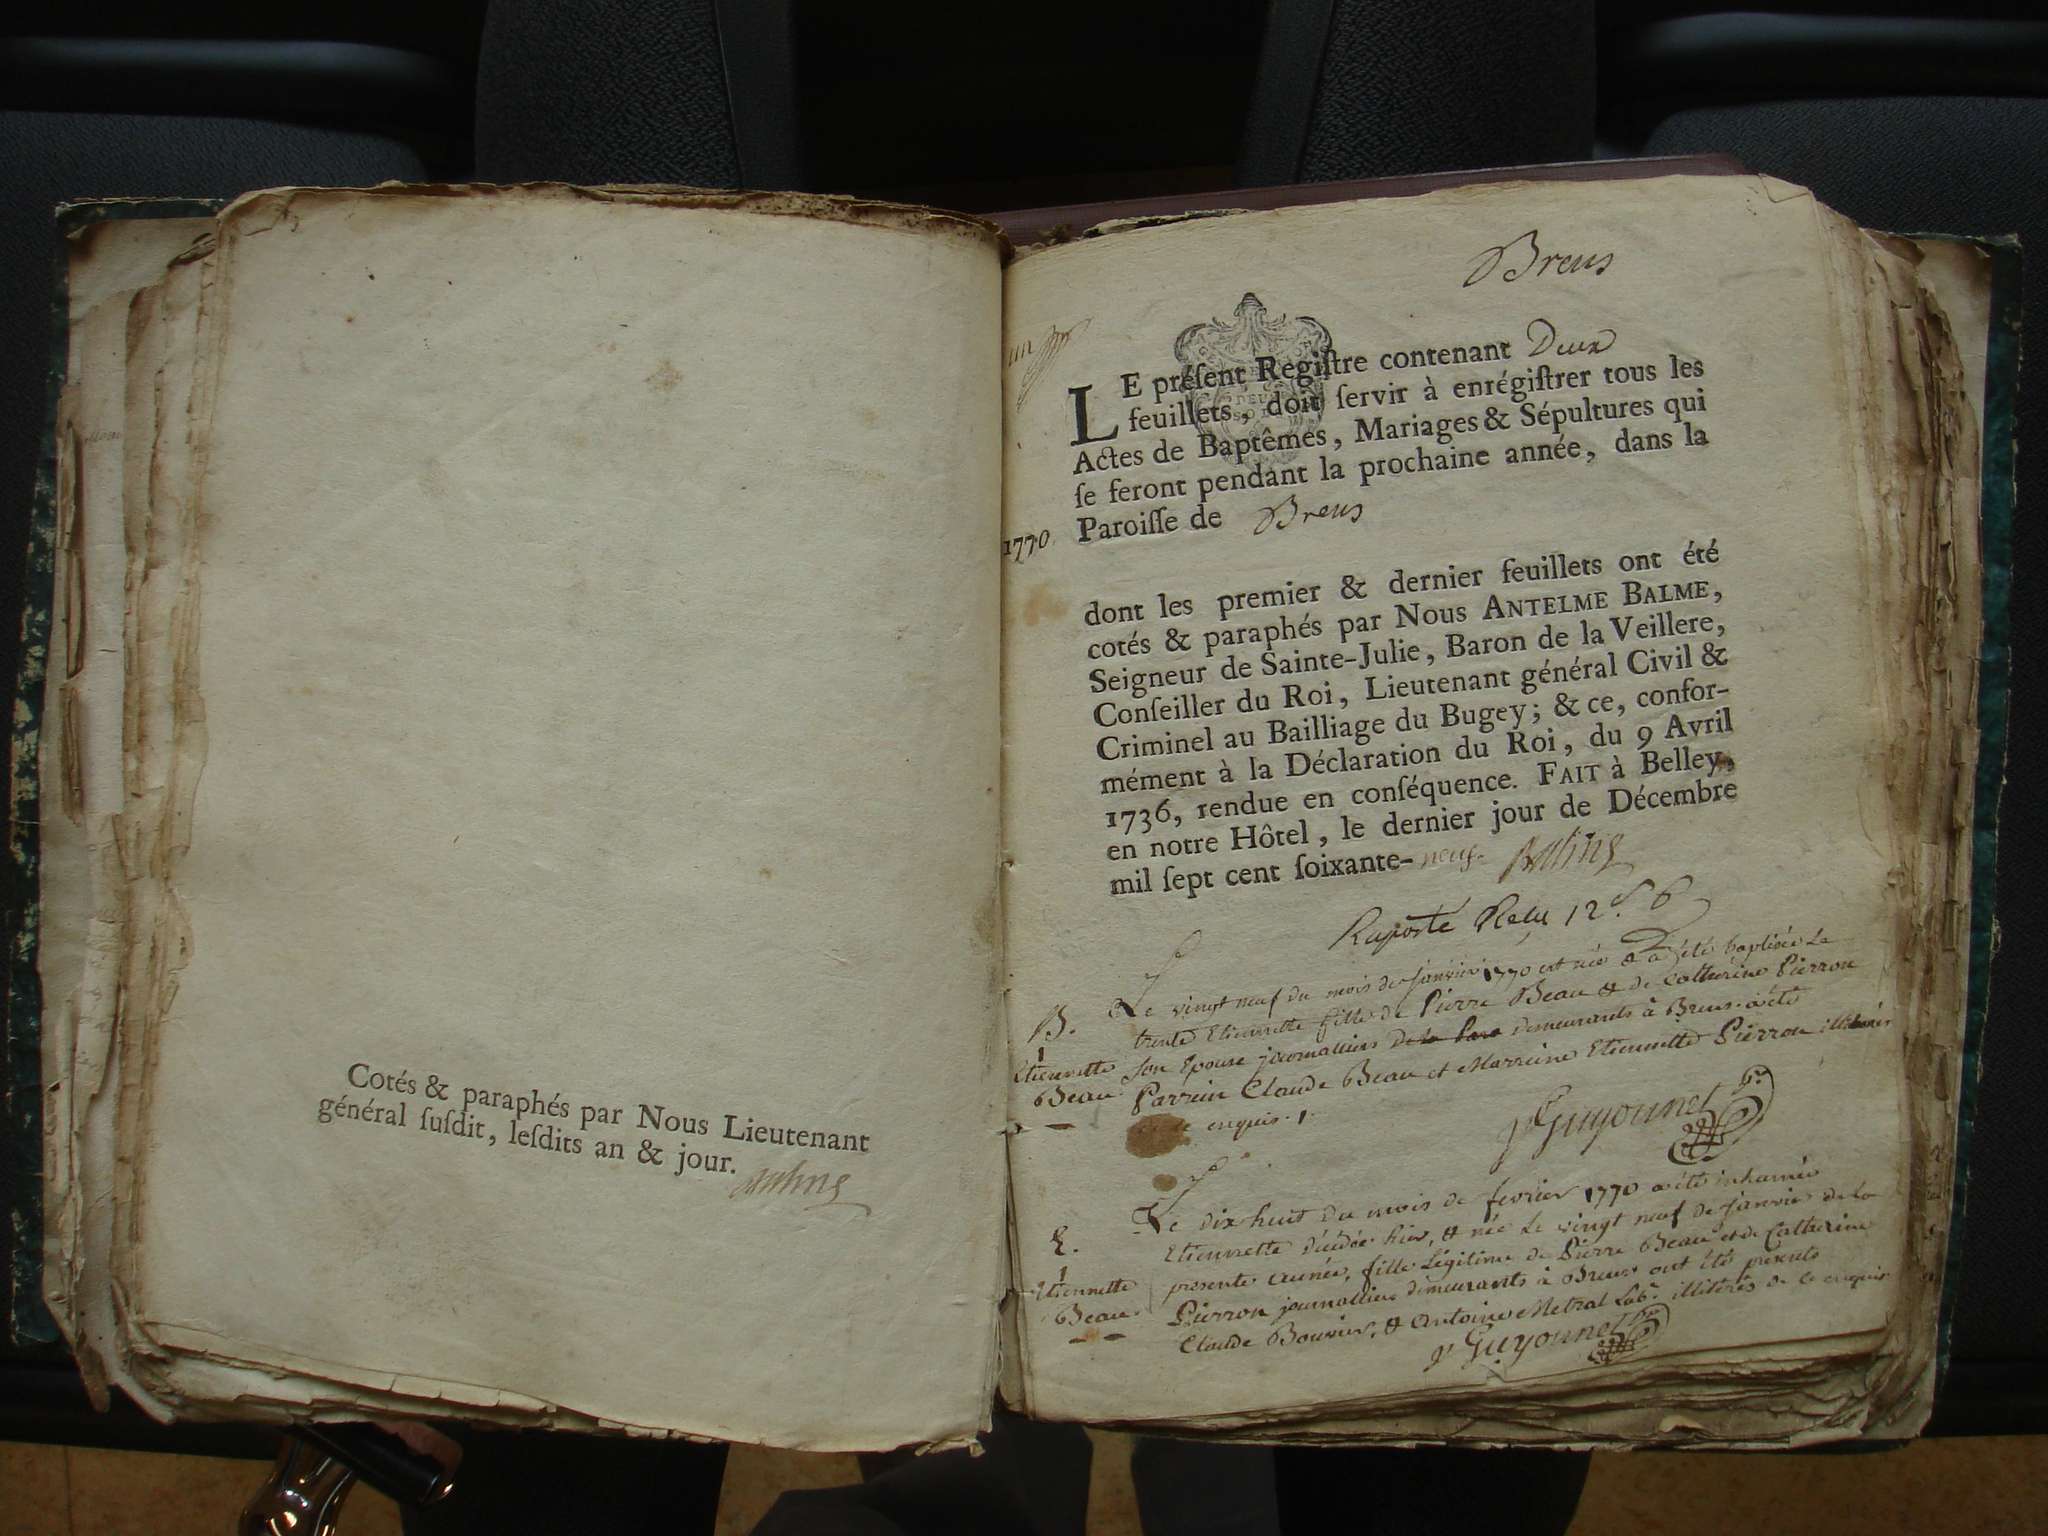 Cotés & paraphés par Nous Lieutenant
général ſuſdit, leſdits an & jour.
Breus
un
LE préſent Regiſtre contenant Deux
feuillets, doit ſervir à enrégiſtrer tous les
Actes de Baptêmes, Mariages & Sépultures qui
ſe feront pendant la prochaine année, dans la
1770 Paroiſſe de Breus
dont les premier & dernier feuillets ont été
cotés & paraphés par Nous ANTELME BALME,
Seigneur de Sainte-Julie, Baron de la Veillere,
Conſeiller du Roi, Lieutenant général Civil &
Criminel au Bailliage du Bugey; & ce, confor-
mément à la Déclaration du Roi, du 9 Avril
1736, rendue en conſéquence. FAIT à Belley,
en notre Hôtel, le dernier jour de Décembre
mil ſept cent ſoixante-neuf.
Raporté Reçu 12 s 6 d
B.
1
Etiennette
Beau
Le vingt neuf du mois de janvier 1770 est née & a été baptisée le
trente Etiennette fille de Pierre Beau & de Catherine Pierron
son Epouse journaliers demeurants à Breus. a été
Parrein Claude Beau et Marreine Etiennette Pierron
enquis. 1.
Guyonnet
E.
1
Etiennette
Beau.
Le dix huit du mois de fevrier 1770 a été inhumée
Etiennette décédée hier, & née le vingt neuf de janvier de la
presente année, fille Légitime de Pierre Beau et de Catherine
Pierron journaliers demeurants à Breus. ont été présents
Claude Bouvier, & Antoine Metral Labr. illiterés de ce enquis
Guyonnet